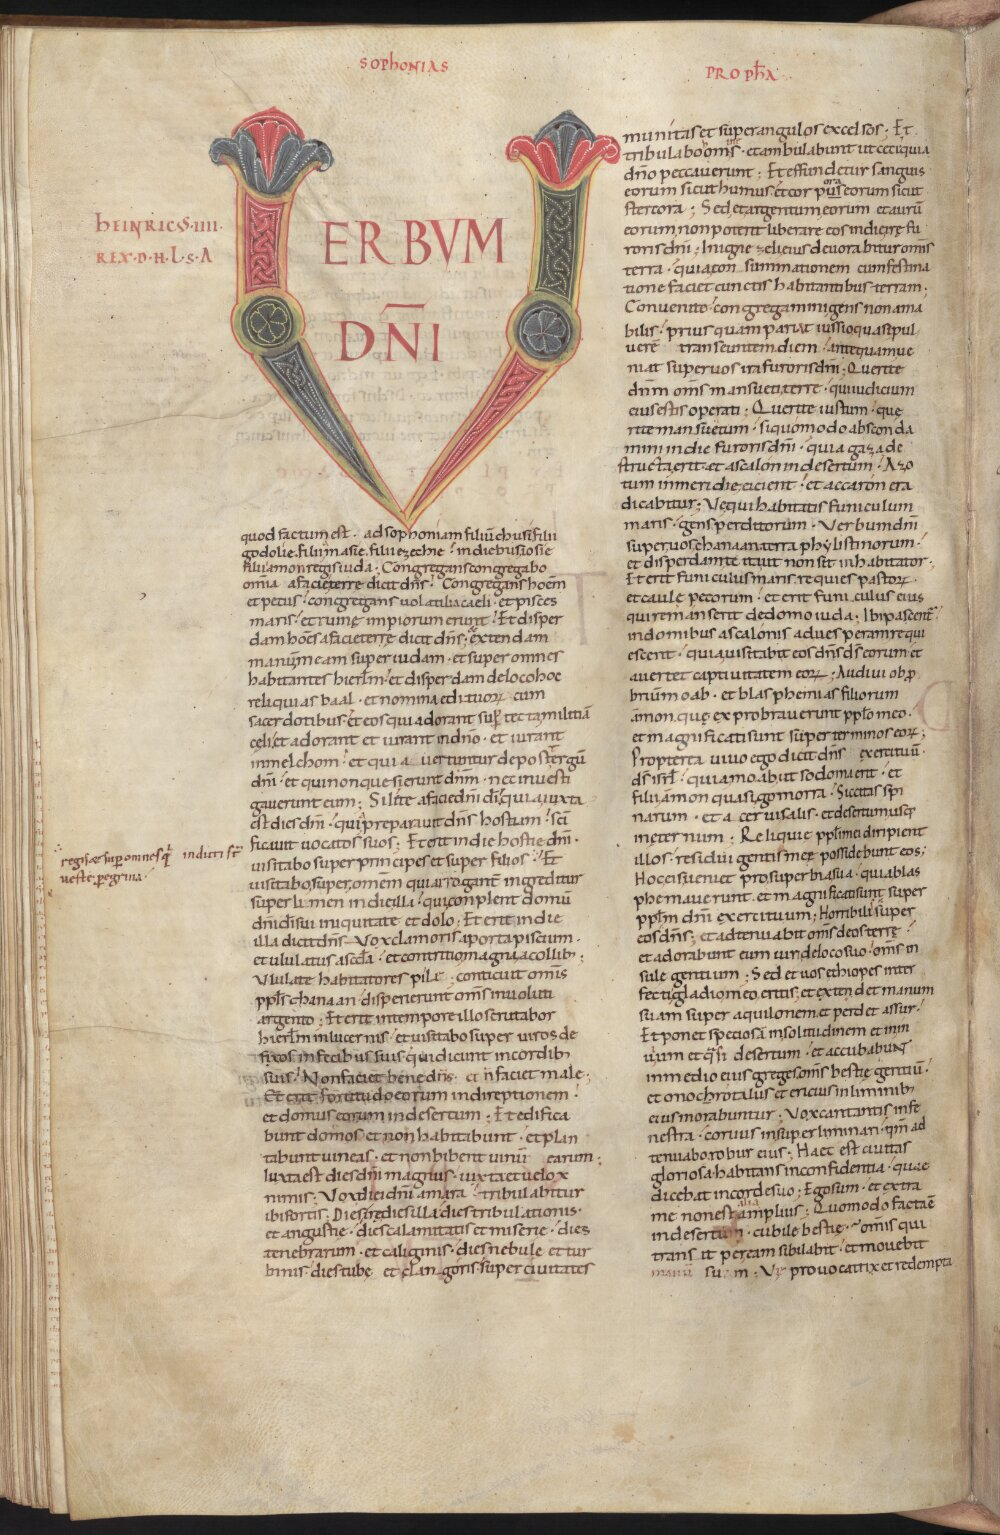 SOPHONIAS
PROPħA
HEINRICS·IIII·
REX·D·H·L·S·A
VERBVM
DN̄I
quod factum est · ad sophoniam filiū chusi filii
godolie·filii masie·filii ezechie · in diebus iosie
filii amon regis iuda · Congregans congregabo
omīa a facie terre dicit dn̄s · Congregans hoēm
et pecus · congregans uolatilia caeli · et pisces
maris · et ruine impiorum erunt · Et disper
dam hoēs a facie terrę dicit dn̄s · extendam
manum eam super iudam · et super omnes
habitantes hierlm̄ · et disperdam de loco hoc
reliquias baal · et nomina edituorꝝ cum
sacerdotibus · et eos qui adorant sup̄ tecta militiā
cęli · et adorant et iurant in dn̄o · et iurant
in melchom · et qui auertuntur de post tergū
dn̄i · et qui non quesierunt dn̄m · nec inuesti
gauerunt eum; Silete a facie dn̄i dī · quia iuxta
est dies dn̄i · quia preparauit dn̄s hostiam · sc̄i
ficauit uocatos suos; Et erit in die hostie dn̄i ·
uisitabo super principes et super filios · Et
regis · et super omnes q̄ induti st̄
ueste peregrina ·
uisitabo super omēm qui arroganť ingreditur
super limen in die illa · qui conplent domū
dn̄i di sui iniquitate et dolo; Et erit in die
illa dicit dn̄s · Vox clamoris a porta piscium ·
et ululatus a scda · et contritio magna a collib;
Vlulate habitatores pilę · conticuit omīs
ppl̄s chanaan · disperierunt om̄s inuoluti
argento; Et erit in tempore illo scrutabor
hierlm̄ in lucernis · et uisitabo super uiros de
fixos in fecibus suis · qui dicunt in cordib;
suis · Non faciet bene dn̄s · et n̄ faciet male;
Et erit fortitudo eorum in direptionem ·
et domus eorum in desertum; Et edifica
bunt domos et non habitabunt · et plan
tabunt uineas · et non bibent uinū earum;
Iuxta est dies dn̄i magnus · iuxta et uelox
nimis; Vox diei dn̄i amara · tribulabitur
ibi fortis. Dies irę dies illa dies tribulationis ·
et angustie · dies calamitatis et miserie · dies
tenebrarum · et caliginis · dies nebule et tur
binis · dies tubę et clangoris super ciuitates
munitas et super angulos excelsos; Et
tribulabo om̄s · et ambulabunt ut ceci quia
dn̄o peccauerunt; Et effundetur sanguis
eorum sicut humus et corpora eorum sicut
stercora; Sed et argentum eorum et aurū
eorum non poterit liberare eos in die irę fu
roris dn̄i; In igne zeli eius deuorabitur om̄s
terra · quia con summationem cum festina
tione faciet cunctis habitantibus terram;
Conuenite congregamini gens non ama
bilis · prius quam pariat iussio quasi pul
uerē transeuntem diem · antequam ue
niat super uos ira furoris dn̄i; Querite
dn̄m om̄s mansueti terre · qui iudicium
eius estis operati; Querite iustum · quę
rite mansuetum · si quomodo abscon da
mini in die furoris dn̄i · quia gaza de
structa erit · et ascalon in desertum · Azo
tum in meridie eicient · et accaron era
dicabitur; Ve qui habitatis funiculum
maris · gens perditorum · Verbum dn̄i
super uos chanaan terra phylistinorum ·
et disperdam te ita ut non sit inhabitator ·
Et erit funiculus maris requies pastorꝝ ·
et caule pecorum · et erit funi culus eius
qui remanserit de domo iuda; Ibi pascent̄ ·
in domibus ascalonis ad uesperam requi
escent · quia uisitabit eos dn̄s ds̄ eorum et
auertet captiuitatem eorꝝ; Audiui obp
brium moab · et blasphemias filiorum
amon · quę exprobrauerunt pplo meo ·
et magnificati sunt super terminos eorꝝ;
Propterea uiuo ego dicit dn̄s exercituū ·
ds̄ isrl̄ · quia moab ut sodoma erit · et
filii ammon quasi gomorra · Siccitas spi
narum · et acerui salis · et desertum usq;
in eternum; Reliquie ppl̄i mei diripient
illos · residui gentis meę possidebunt eos;
Hoc eis ueniet pro superbia sua · quia blas
phemauerunt · et magnificati sunt super
ppl̄m dn̄i exercituum; Horribilis super
eos dn̄s; et adtenuabit om̄s deos terrę ·
et adorabunt eum uiri de loco suo · om̄s in
sule gentium; Sed et uos ethiopes inter
fecti gladio meo eritis; et extendet manum
suam super aquilonem · et perdet assur ·
Et ponet speciosā in solitudinem et inui
uium et q̄si desertum · et accubabunt
in medio eius greges om̄s bestie gentiū ·
et onochrotalus et ericius in liminib;
eius morabuntur; Vox cantantis in fe
nestra · coruus in superliminari · qm̄ ad
tenuabo robur eius; Haec est ciuitas
gloriosa habitans in confidentia · quae
dicebat in corde suo; Ego sum · et extra
me non est alia amplius; Quomodo facta ē
in desertum · cubile bestię · omīs qui
trans it per eam sibilabit · et mouebit
manū suam; Vę prouocatrix et redempta